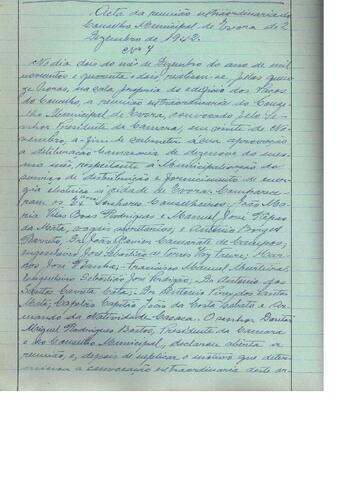 Acta da reunião extraordinaria do
Conselho Municipal de Evora de 2
Dezembro de 1942.
Nº 4
No dia dois do mês de Dezembro do ano de mil
novecentos e quarenta e dois, realizou-se, pelas quin-
ze horas, na sala propria do edificio dos Paços
do Concelho, a reunião extraordinaria do Conse-
lho Municipal de Evora, convocado pelo Se-
nhor Presidente da Camara, em vinte de No-
vembro, a-fim-de submeter á sua aprovação
a deliberação camararia de dezenove do mesmo
mês, respeitante á Municipalisação do
serviço de distribuição e fornecimento de ener-
gia electrica á cidade de Evora. Comparece-
ram os Exmos Senhores Conselheiros: João Ma-
ria Vilas Boas Rodrigues e Manuel José
da Mata, vogais secretarios; e António Borges
Barreto, Dr. João Camarate de Campos,
engenheiro José Sebastião de Torres Vaz Freire;
José; Francisco Manuel
Engenheiro Sebastião José Perdigão; Dr. Antonio dos
Santos Cota; Dr. Antonio dos Santos
Capitão João da Costa e
da Natividade. O senhor Doutor
Miguel Rodrigues Bastos, Presidente da Camara
e do Conselho Municipal, declarou aberta a
reunião e, depois de explicar o motivo que deter-
minou a convocação extraordinaria deste